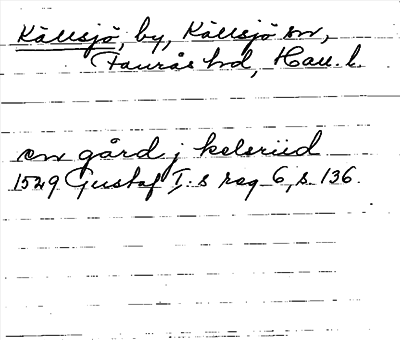 Källsjö, by, Källsjö sn,
Faurås hd, Hall. l.
en gård j keleriid
1529 Gustaf I:s reg 6, s. 136.